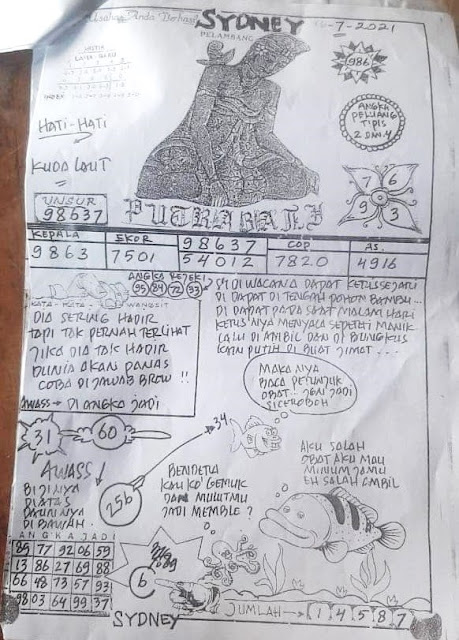 Usaha Anda Berhasil
SYDNEY
-7-2021
PELAMBANG
986
HATI-HATI
ANGKA
PELUANG
TIPIS
2 DAN 4
KUDA LAUT
7 6
9 3
UNSUR
98637
PUTRA BALI
KEPALA EKOR 98637 COP AS.
9863 7501 54012 7820 4916
ANGKA REJEKI
95 84 72 33
KATA-KATA WANGSIT
DIA SERING HADIR
TAPI TAK PERNAH TERLIHAT
JIKA DIA TAK HADIR
DUNIA AKAN PANAS
COBA DI JAWAB BROW !!
AWASS → DI ANGKA JADI
SI DI WACANA DAPAT KERIS SEJARI
DI DAPAT DI TENGAH POHON BAMBU...
DI DAPAT PADA SAAT MALAM HARI
KERIS'NYA MENYALA SEPERTI MANIK
LALU DI AMBIL DAN DI BUNGKUS
KAIN PUTIH DI BUAT JIMAT...
MAKA NYA
BACA PETUNJUK
OBAT.. JGN JADI
SI CEROBOH
31 60
34
256
AWASS!
BIJINYA
DI ATAS
DAUNNYA
DI BAWAH.
BENDERA
KAU KO' GEMUK
DAN MULUTMU
JADI MEMBLE ?
AKU SALAH
OBAT AKU MAU
MINUM JAMU
EH SALAH AMBIL
ANGKA JADI
89 77 92 06 59
13 86 27 69 88
66 48 73 57 93
98 03 64 99 37
6
SYDNEY
JUMLAH → 1 4 5 8 7